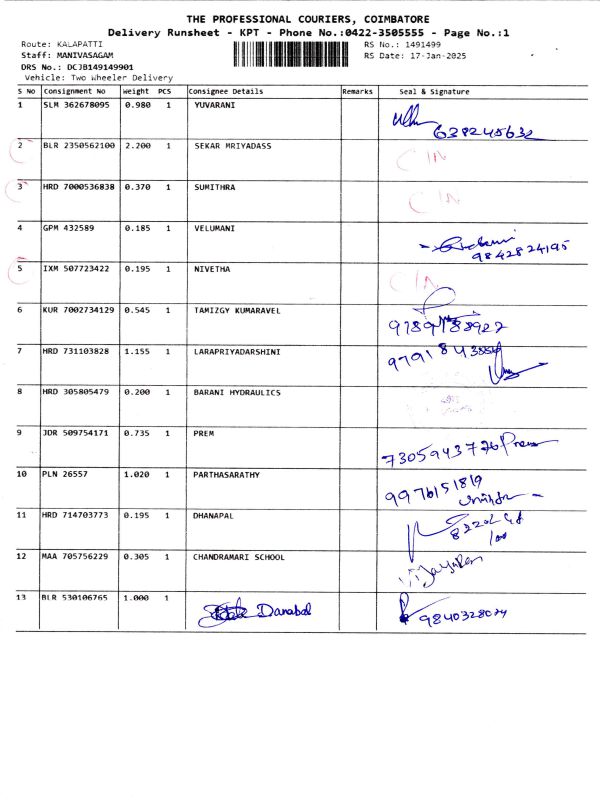 THE PROFESSIONAL COURIERS, COIMBATORE
Delivery Runsheet - KPT - Phone No.:0422-3505555 - Page No.:1
Route: KALAPATTI RS No.: 1491499
Staff: MANIVASAGAM RS Date: 17-Jan-2025
DRS No.: DCJB149149901
Vehicle: Two Wheeler Delivery
S No Consignment No Weight PCS Consignee Details Remarks Seal & Signature
1 SLM 362678095 0.980 1 YUVARANI
2 BLR 2350562100 2.200 1 SEKAR MRIYADASS
3 HRD 7000536838 0.370 1 SUMITHRA
4 GPM 432589 0.185 1 VELUMANI
9842824195
5 IXM 507723422 0.195 1 NIVETHA
6 KUR 7002734129 0.545 1 TAMIZGY KUMARAVEL
7 HRD 731103828 1.155 1 LARAPRIYADARSHINI
8 HRD 305805479 0.200 1 BARANI HYDRAULICS
9 JDR 509754171 0.735 1 PREM
Prem
10 PLN 26557 1.020 1 PARTHASARATHY
9976151819
11 HRD 714703773 0.195 1 DHANAPAL
12 MAA 705756229 0.305 1 CHANDRAMARI SCHOOL
13 BLR 530106765 1.000 1 Danabal